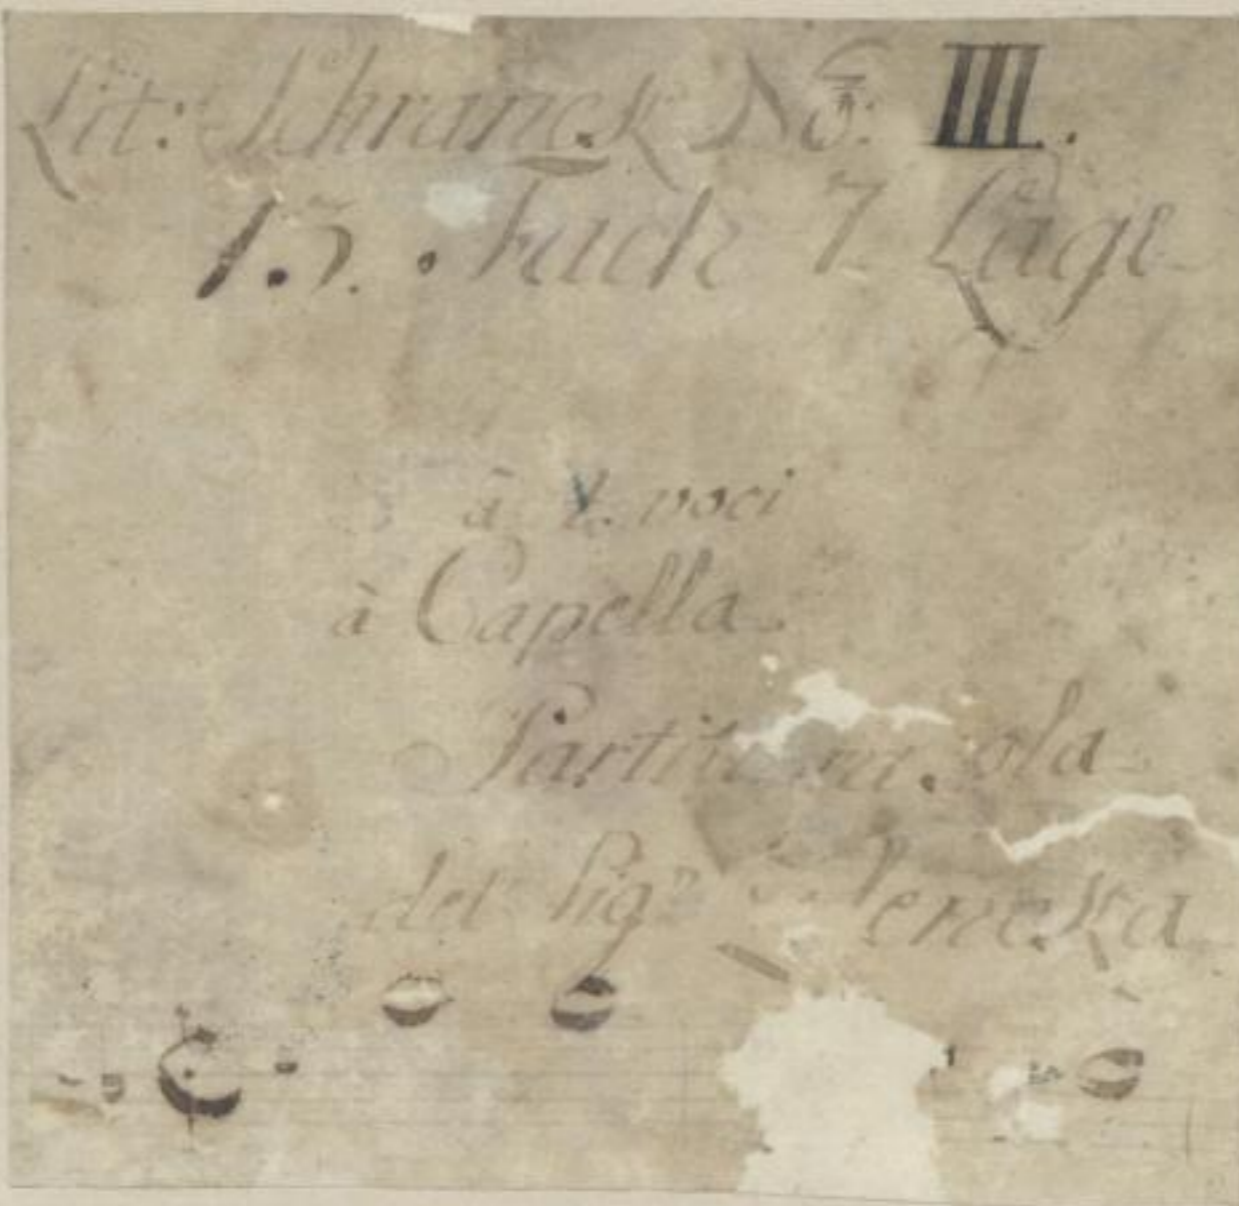 Lit: Schranck No: III.
13. Fach 7 Lage
à voci
à Capella.
Partitura sola
del Sigr Zelencka